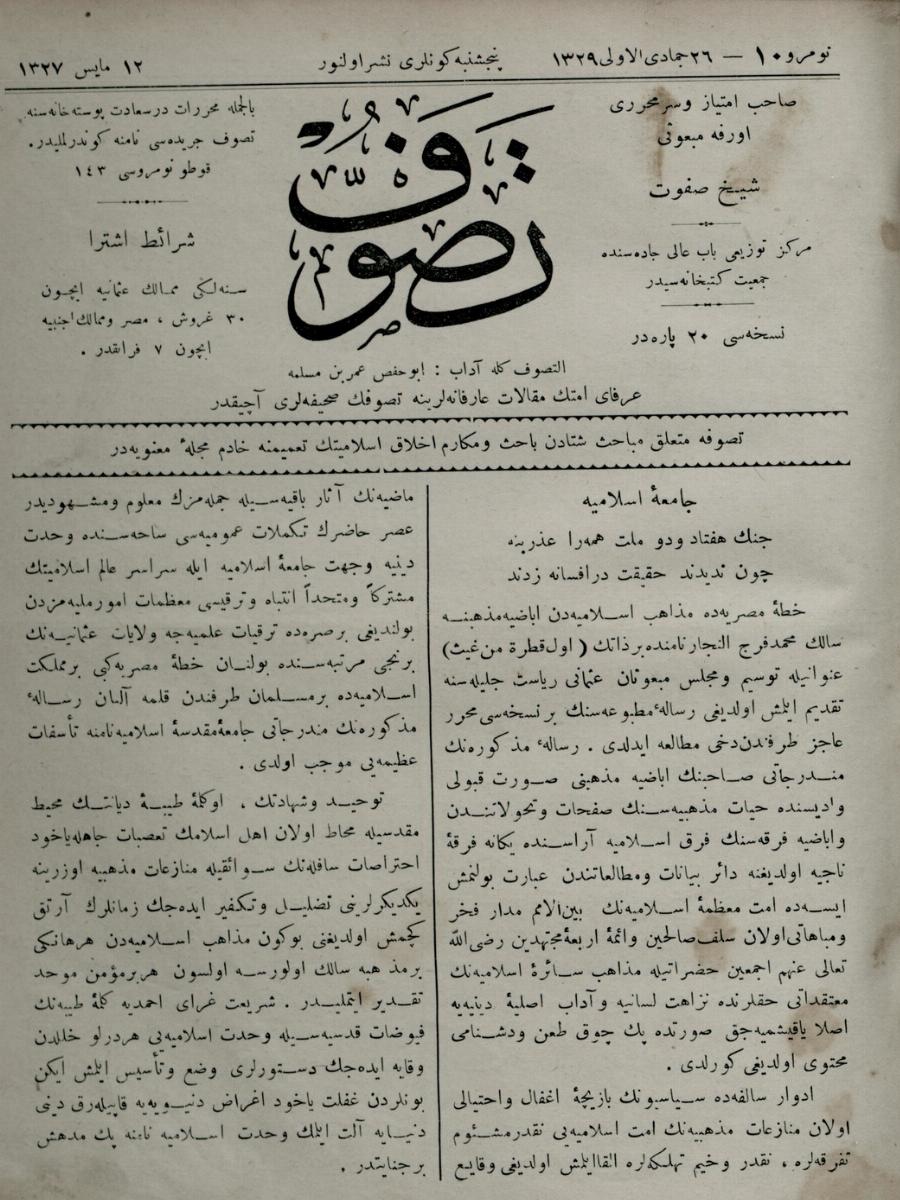 نومرو ۱۰ — ۲۶ جمادی الاولی ۱۳۲۹
پنجشنبه كونلری نشر اولنور
۱۲ مایس ۱۳۲۷
صاحب امتیاز وسرمحرری
اورفه مبعوثی
شیخ صفوت
مركز توزیعی باب عالی جاده‌سنده
جمعیت كتبخانه‌سیدر
نسخه‌سی ۲۰ پاره‌در
تصوف
بالجمله محررات درسعادت پوسته‌خانه‌سنه
تصوف جریده‌سی نامنه كوندرلملیدر.
قوطو نومروسی ۱۴۳
شرائط اشترا
سنه‌لكی ممالك عثمانیه ایچون
۳۰ غروش ، مصر وممالك اجنبیه
ایچون ۷ فرانقدر .
التصوف كله آداب : ابوحفص عمر بن مسلمه
عرفای امتك مقالات عارفانه‌لرینه تصوفك صحیفه‌لری آچیقدر
تصوفه متعلق مباحث شتادن باحث ومكارم اخلاق اسلامیتك تعمیمنه خادم مجلهٔ معنویه‌در
جامعهٔ اسلامیه
جنك هفتاد ودو ملت همه‌را عذربنه
چون ندیدند حقیقت درافسانه زدند
خطهٔ مصریه‌ده مذاهب اسلامیه‌دن اباضیه‌مذهبنه
سالك محمدفرج النجار نامنده برذاتك ( اول قطرة من غیث )
عنوانیله توسیم ومجلس مبعوثان عثمانی ریاست جلیله‌سنه
تقدیم ایلمش اولدیغی رسالهٔ مطبوعه‌سنك برنسخه‌سی محرر
عاجز طرفندن‌دخی مطالعه ایدلدی . رسالهٔ مذكوره‌نك
مندرجاتی صاحبنك اباضیه مذهبنی صورت قبولی
وادیسنده حیات مذهبیه‌سنك صفحات وتحولاتندن
واباضیه فرقه‌سنك فرق اسلامیه آراسنده یكانه فرقهٔ
ناجیه اولدیغنه دائر بیانات ومطالعاتندن عبارت بولنمش
ایسه‌ده امت معظمهٔ اسلامیه‌نك بین‌الامم مدار فخر
ومباهاتی‌اولان سلف‌صالحین وائمهٔ اربعهٔ‌مجتهدین رضی‌الله
تعالی عنهم اجمعین حضراتیله مذاهب سائرهٔ اسلامیه‌نك
معتقداتی حقلرنده نزاهت لسانیه وآداب اصلیهٔ دینیه‌یه
اصلا یاقیشمیه‌جق صورتده پك چوق طعن ودشنامی
محتوی اولدیغی كورلدی .
ادوار سالفه‌ده سیاسیونك بازیچهٔ اغفال واحتیالی
اولان منازعات مذهبیه‌نك امت اسلامیه‌یی نقدرمشئوم
تفرقه‌لره ، نقدر وخیم تهلكه‌لره القاایلمش اولدیغی وقایع
ماضیه‌نك آثار باقیه‌سیله جمله‌مزك معلوم ومشهودیدر
عصر حاضرك تكملات عمومیه‌سی ساحه‌سنده وحدت
دینیه وجهت جامعهٔ اسلامیه ایله سراسر عالم اسلامیتك
مشتركاً ومتحداً انتباه وترقیسی معظمات امورملیه‌مزدن
بولندیغی برصره‌ده ترقیات علمیه‌جه ولایات عثمانیه‌نك
برنجی مرتبه‌سنده بولنان خطهٔ مصریه‌كبی برمملكت
اسلامیه‌ده برمسلمان طرفندن قلمه آلنان رسالهٔ
مذكوره‌نك مندرجاتی جامعهٔ‌مقدسهٔ اسلامیه‌نامنه تأسفات
عظیمه‌یی موجب اولدی .
توحید وشهادتك ، اوكلمهٔ طیبهٔ دیانتك محیط
مقدسیله محاط اولان اهل اسلامك تعصبات جاهله‌یاخود
احتراصات سافله‌نك سوائقیله منازعات مذهبیه اوزرینه
یكدیكرلرینی تضلیل وتكفیر ایده‌جك زمانلرك آرتق
كچمش اولدیغنی بوكون مذاهب اسلامیه‌دن هرهانكی
برمذهبه سالك اولورسه اولسون هربرمؤمن موحد
تقدیر ایتملیدر . شریعت غرای احمدیه كلمهٔ طیبه‌نك
فیوضات قدسیه‌سیله وحدت اسلامیه‌یی هردرلو خللدن
وقایه ایده‌جك دستورلری وضع وتأسیس ایلمش ایكن
بونلردن غفلت یاخود اغراض دنیویه‌یه قاپیله‌رق دینی
دنیایه آلت ایلمك وحدت اسلامیه نامنه پك مدهش
برجنایتدر .